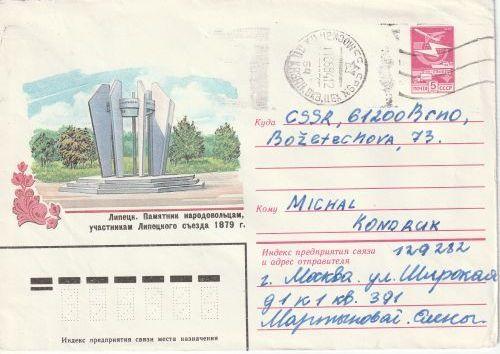 ПОЧТА 5 СССР
Куда ČSSR, 61200 Brno,
Božetěchova, 73.
Липецк. Памятник народовольцам,
участникам Липецкого съезда 1879 г.
Кому MICHAL
KONDRUK
Индекс предприятия связи
и адрес отправителя 129282
г. Москва ул. Широкая
д 1 к 1 кв. 391
Мартыновой Елены.
Индекс предприятия связи места назначения